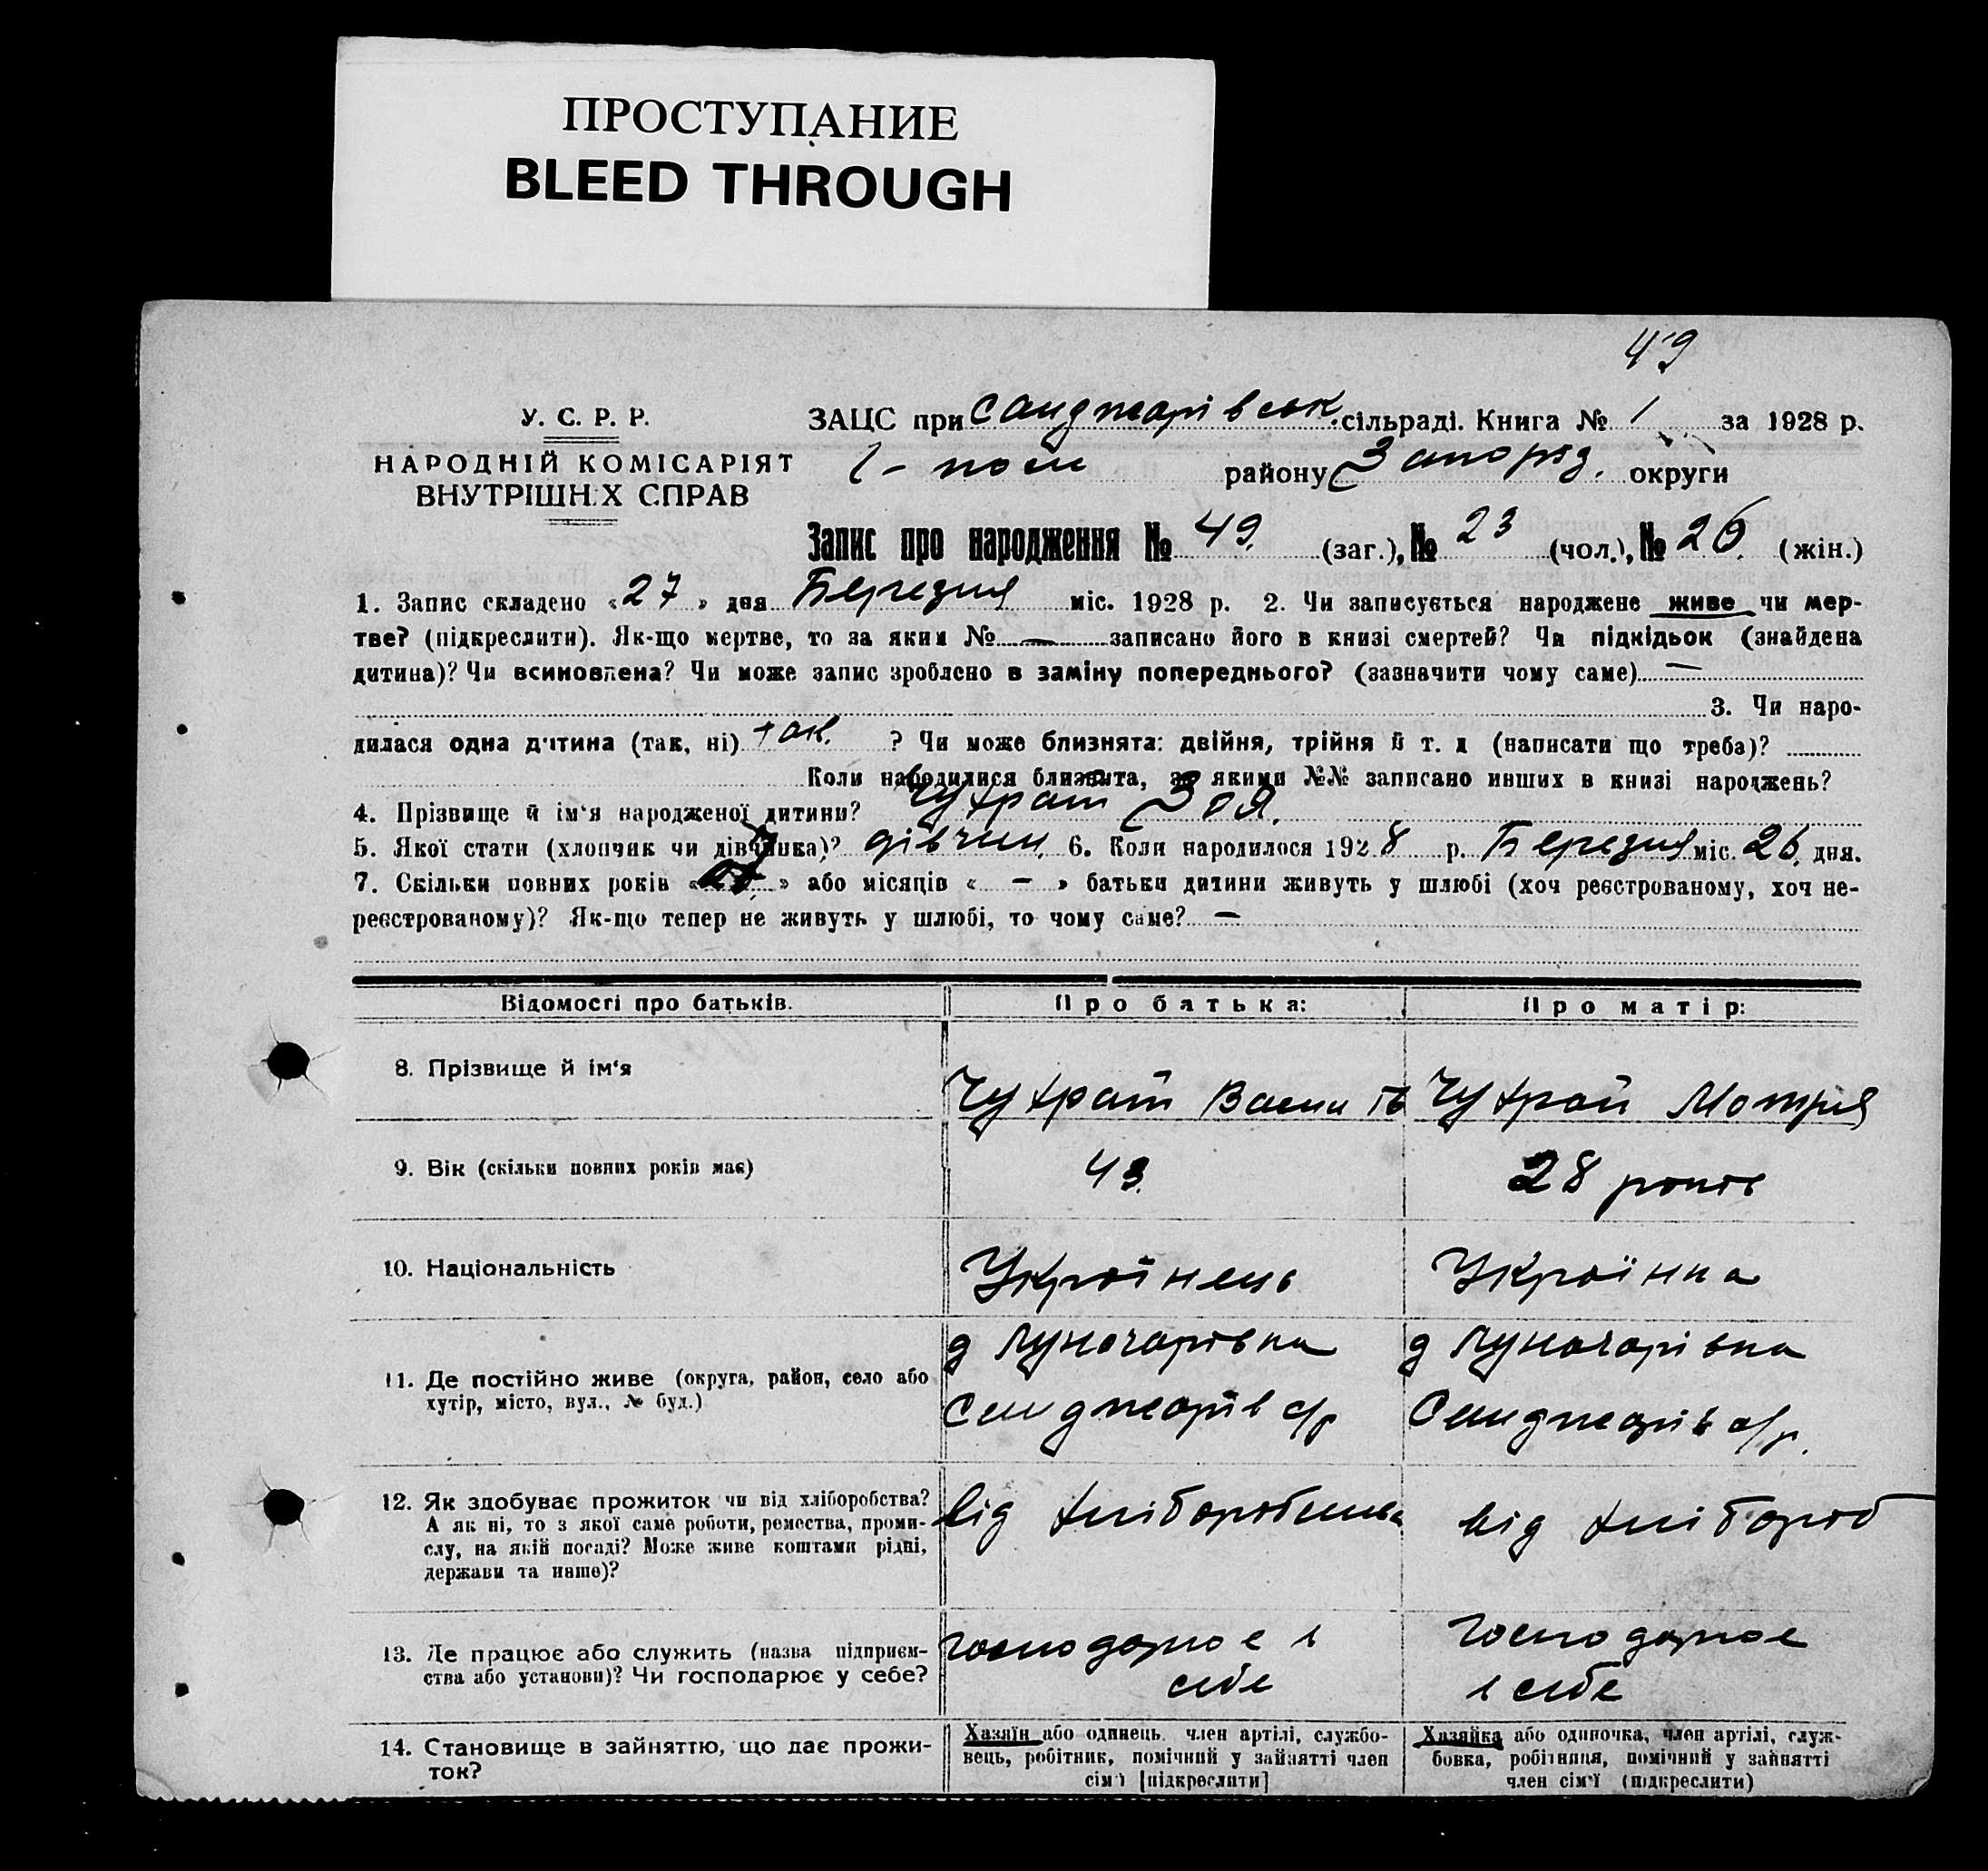 ПРОСТУПАНИЕ
BLEED THROUGH
49
У. С. Р. Р.
НАРОДНІЙ КОМІСАРІЯТ
ВНУТРІШНІХ СПРАВ
ЗАЦС при Санджарівськ. сільраді. Книга № 1 за 1928 р.
району Запоріз. округи
Запис про народження № 49. (заг.), № 23 (чол.), № 26. (жін.)
1. Запис складено «27» дня Березня міс. 1928 р. 2. Чи записується народжене живе чи мер-
тве? (підкреслити). Як-що мертве, то за яким № — записано його в книзі смертей? Чи підкідьок (знайдена
дитина)? Чи всиновлена? Чи може запис зроблено в заміну попереднього? (зазначити чому саме) —
3. Чи наро-
дилася одна дитина (так, ні) так. ? Чи може близнята: двійня, трійня й т. д (написати що треба)?
Коли народилися близнята, за якими №№ записано инших в книзі народжень?
4. Прізвище й ім'я народженої дитини? Чухрай Зоя.
5. Якої стати (хлопчик чи дівчинка)? дівчин. 6. Коли народилося 1928 р. Березня міс. 26. дня.
7. Скільки повних років « » або місяців « — » батьки дитини живуть у шлюбі (хоч реєстрованому, хоч не-
реєстрованому)? Як-що тепер не живуть у шлюбі, то чому саме? —
Відомості про батьків. Про батька: Про матір:
8. Прізвище й ім'я
Чухрай Василь Чухрай Мотря
9. Вік (скільки повних років має) 43. 28 років
10. Національність Українець Українка
д Луначарівка д Луначарівка
11. Де постійно живе (округа, район, село або
хутір, місто, вул., № буд.)
Санджарів с/р Санджарів с/р.
12. Як здобуває прожиток чи від хліборобства?
А як ні, то з якої саме роботи, ремества, проми-
слу, на якій посаді? Може живе коштами рідні,
держави та инше)?
від хліборобства від хлібороб
13. Де працює або служить (назва підприєм-
ства або установи)? Чи господарює у себе?
господарює в
себе
господарює
в себе
14. Становище в зайняттю, що дає прожи-
ток?
Хазяїн або одинець. член артілі, службо-
вець, робітник, помічний у зайнятті член
сім'ї [підкреслити]
Хазяйка або одиночка, член артілі, служ-
бовка, робітниця, помічний у зайнятті
член сім'ї (підкреслити)